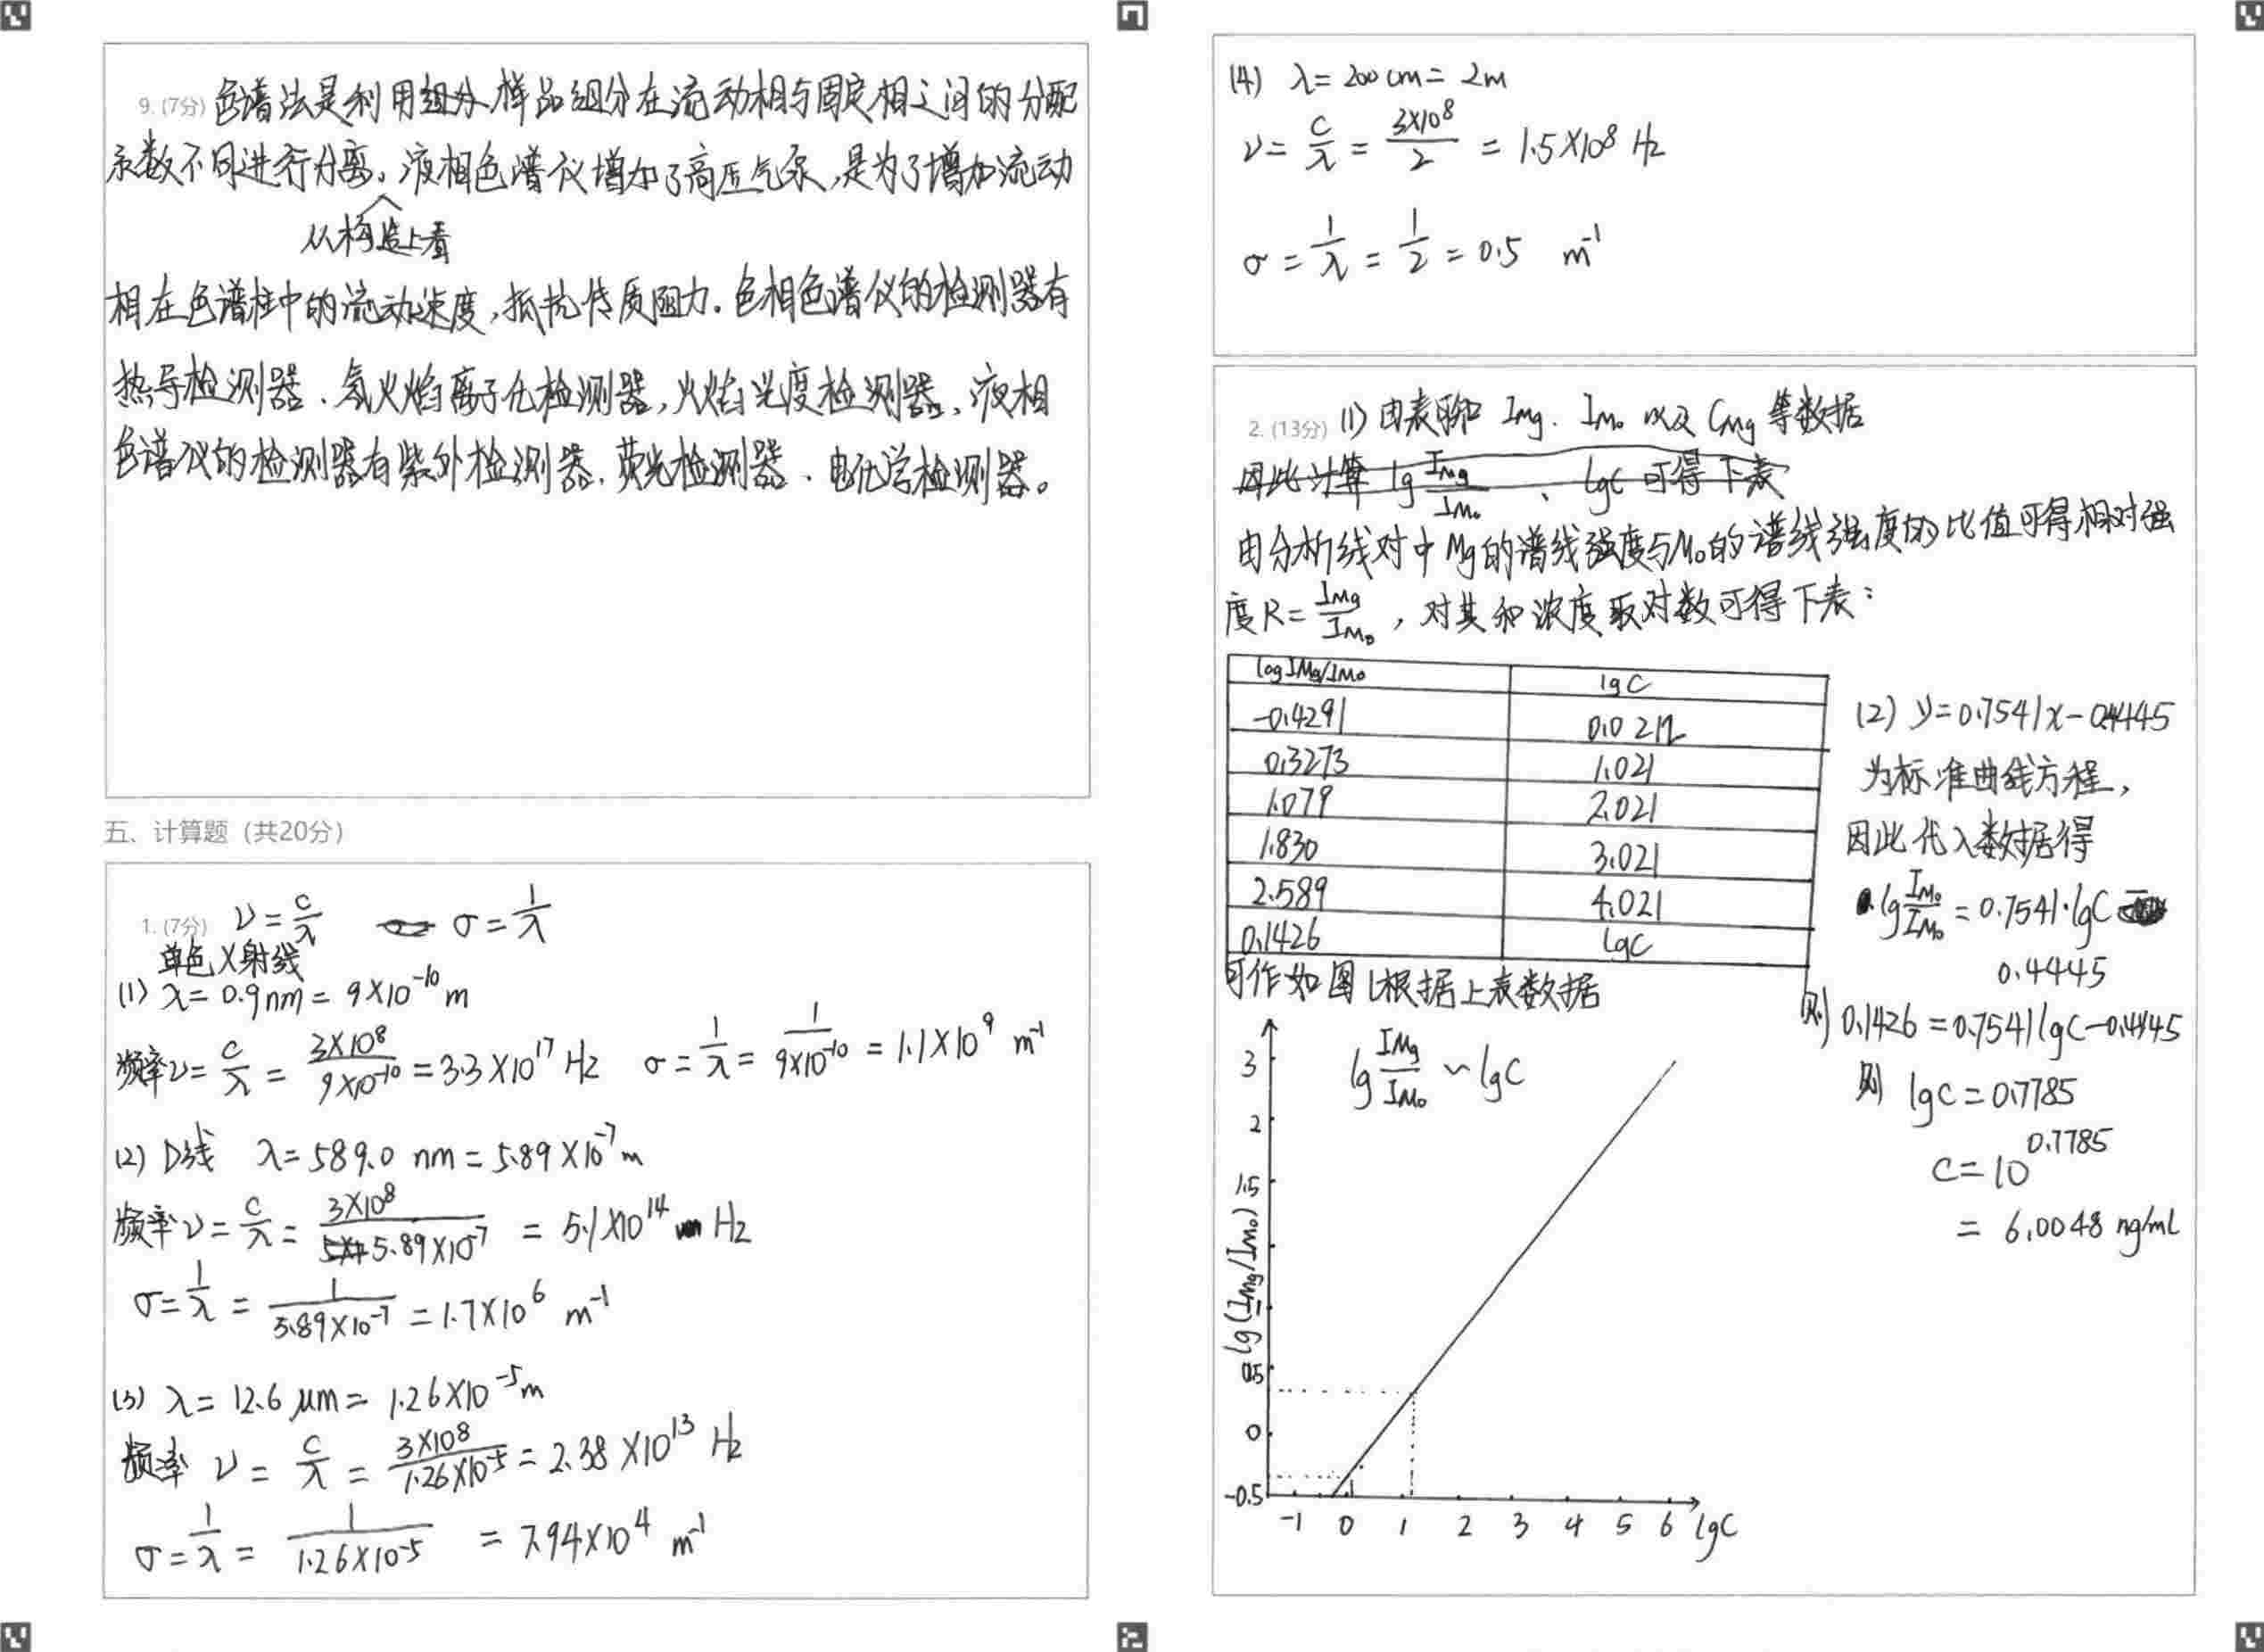 9. (7分) 色谱法是利用组分样品组分在流动相与固定相之间的分配
系数不同进行分离。液相色谱仪增加了高压气泵,是为了增加流动
从构造上看
相在色谱柱中的流动速度,抵抗传质阻力。色相色谱仪的检测器有
热导检测器、氢火焰离子化检测器,火焰光度检测器、液相
色谱仪的检测器有紫外检测器、荧光检测器、电化学检测器。
五、计算题 (共20分)
1. (7分) ν = c/λ σ = 1/λ
单色X射线
(1) λ = 0.9nm = 9×10⁻¹⁰ m
频率ν = c/λ = 3×10⁸/9×10⁻¹⁰ = 3.3×10¹⁷ Hz σ = 1/λ = 1/9×10⁻¹⁰ = 1.1×10⁹ m⁻¹
(2) D线 λ = 589.0 nm = 5.89×10⁻⁷ m
频率ν = c/λ = 3×10⁸/5.89×10⁻⁷ = 5.1×10¹⁴ Hz
σ = 1/λ = 1/5.89×10⁻⁷ = 1.7×10⁶ m⁻¹
(3) λ = 12.6 μm = 1.26×10⁻⁵ m
频率 ν = c/λ = 3×10⁸/1.26×10⁻⁵ = 2.38×10¹³ Hz
σ = 1/λ = 1/1.26×10⁻⁵ = 7.94×10⁴ m⁻¹
(4) λ = 200 cm = 2m
ν = c/λ = 3×10⁸/2 = 1.5×10⁸ Hz
σ = 1/λ = 1/2 = 0.5 m⁻¹
2. (13分) (1) 由表 IMg、IMo 以及 CMg 等数据
因此计算 lg IMg/IMo 、 lgC 可得下表
由分析线对中Mg的谱线强度与Mo的谱线强度的比值可得相对强
度R = IMg/IMo ,对其和浓度取对数可得下表:
log IMg/IMo lgC
-0.4291 0.0212
0.3273 1.021
1.079 2.021
1.830 3.021
2.589 4.021
0.1426 lgC
可作如图 根据上表数据
lg IMg/IMo ~ lgC
3
2
1.5
1
0.5
0
-0.5
lg(IMg/IMo)
-1 0 1 2 3 4 5 6 lgC
(2) y = 0.7541x - 0.4445
为标准曲线方程,
因此代入数据得
lg IMo/IMo = 0.7541·lgC -
0.4445
则 0.1426 = 0.7541lgC - 0.4445
则 lgC = 0.7785
C = 10^0.7785
= 6.0048 ng/ml